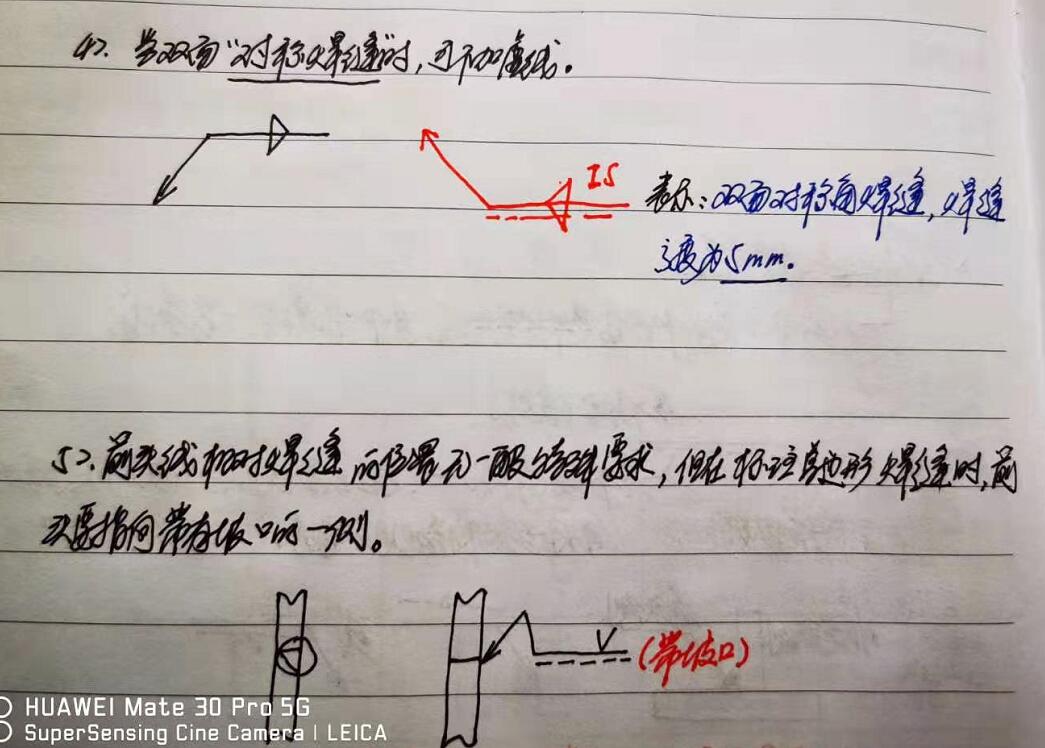 4>. 当双面“对称焊缝”时，可不加虚线。
IS
表示：双面对称角焊缝，焊缝
宽度为5mm。
5>. 箭头线相对焊缝的位置无一般特殊要求，但在标注单边形焊缝时，箭
头要指向带有坡口的一侧。
V
(带坡口)
HUAWEI Mate 30 Pro 5G
SuperSensing Cine Camera | LEICA